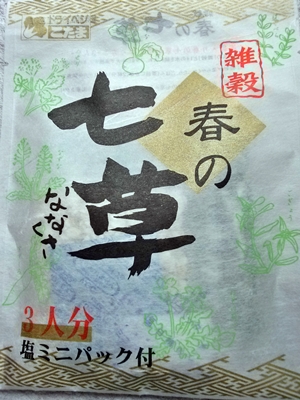 ドライベジ
こだま
春の七草
雑穀
春の
七草
ななくさ
3人分
塩ミニパック付